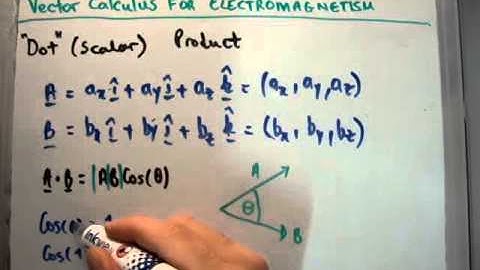 Vector Calculus FOR ELECTROMAGNETISM
"Dot" (scalar) Product
A = aₓî + aᵧî + a_z k̂ = (aₓ, aᵧ, a_z)
B = bₓî + bᵧî + b_z k̂ = (bₓ, bᵧ, b_z)
A · B = |A||B|Cos(θ)
A
θ
B
Cos(
Cos(